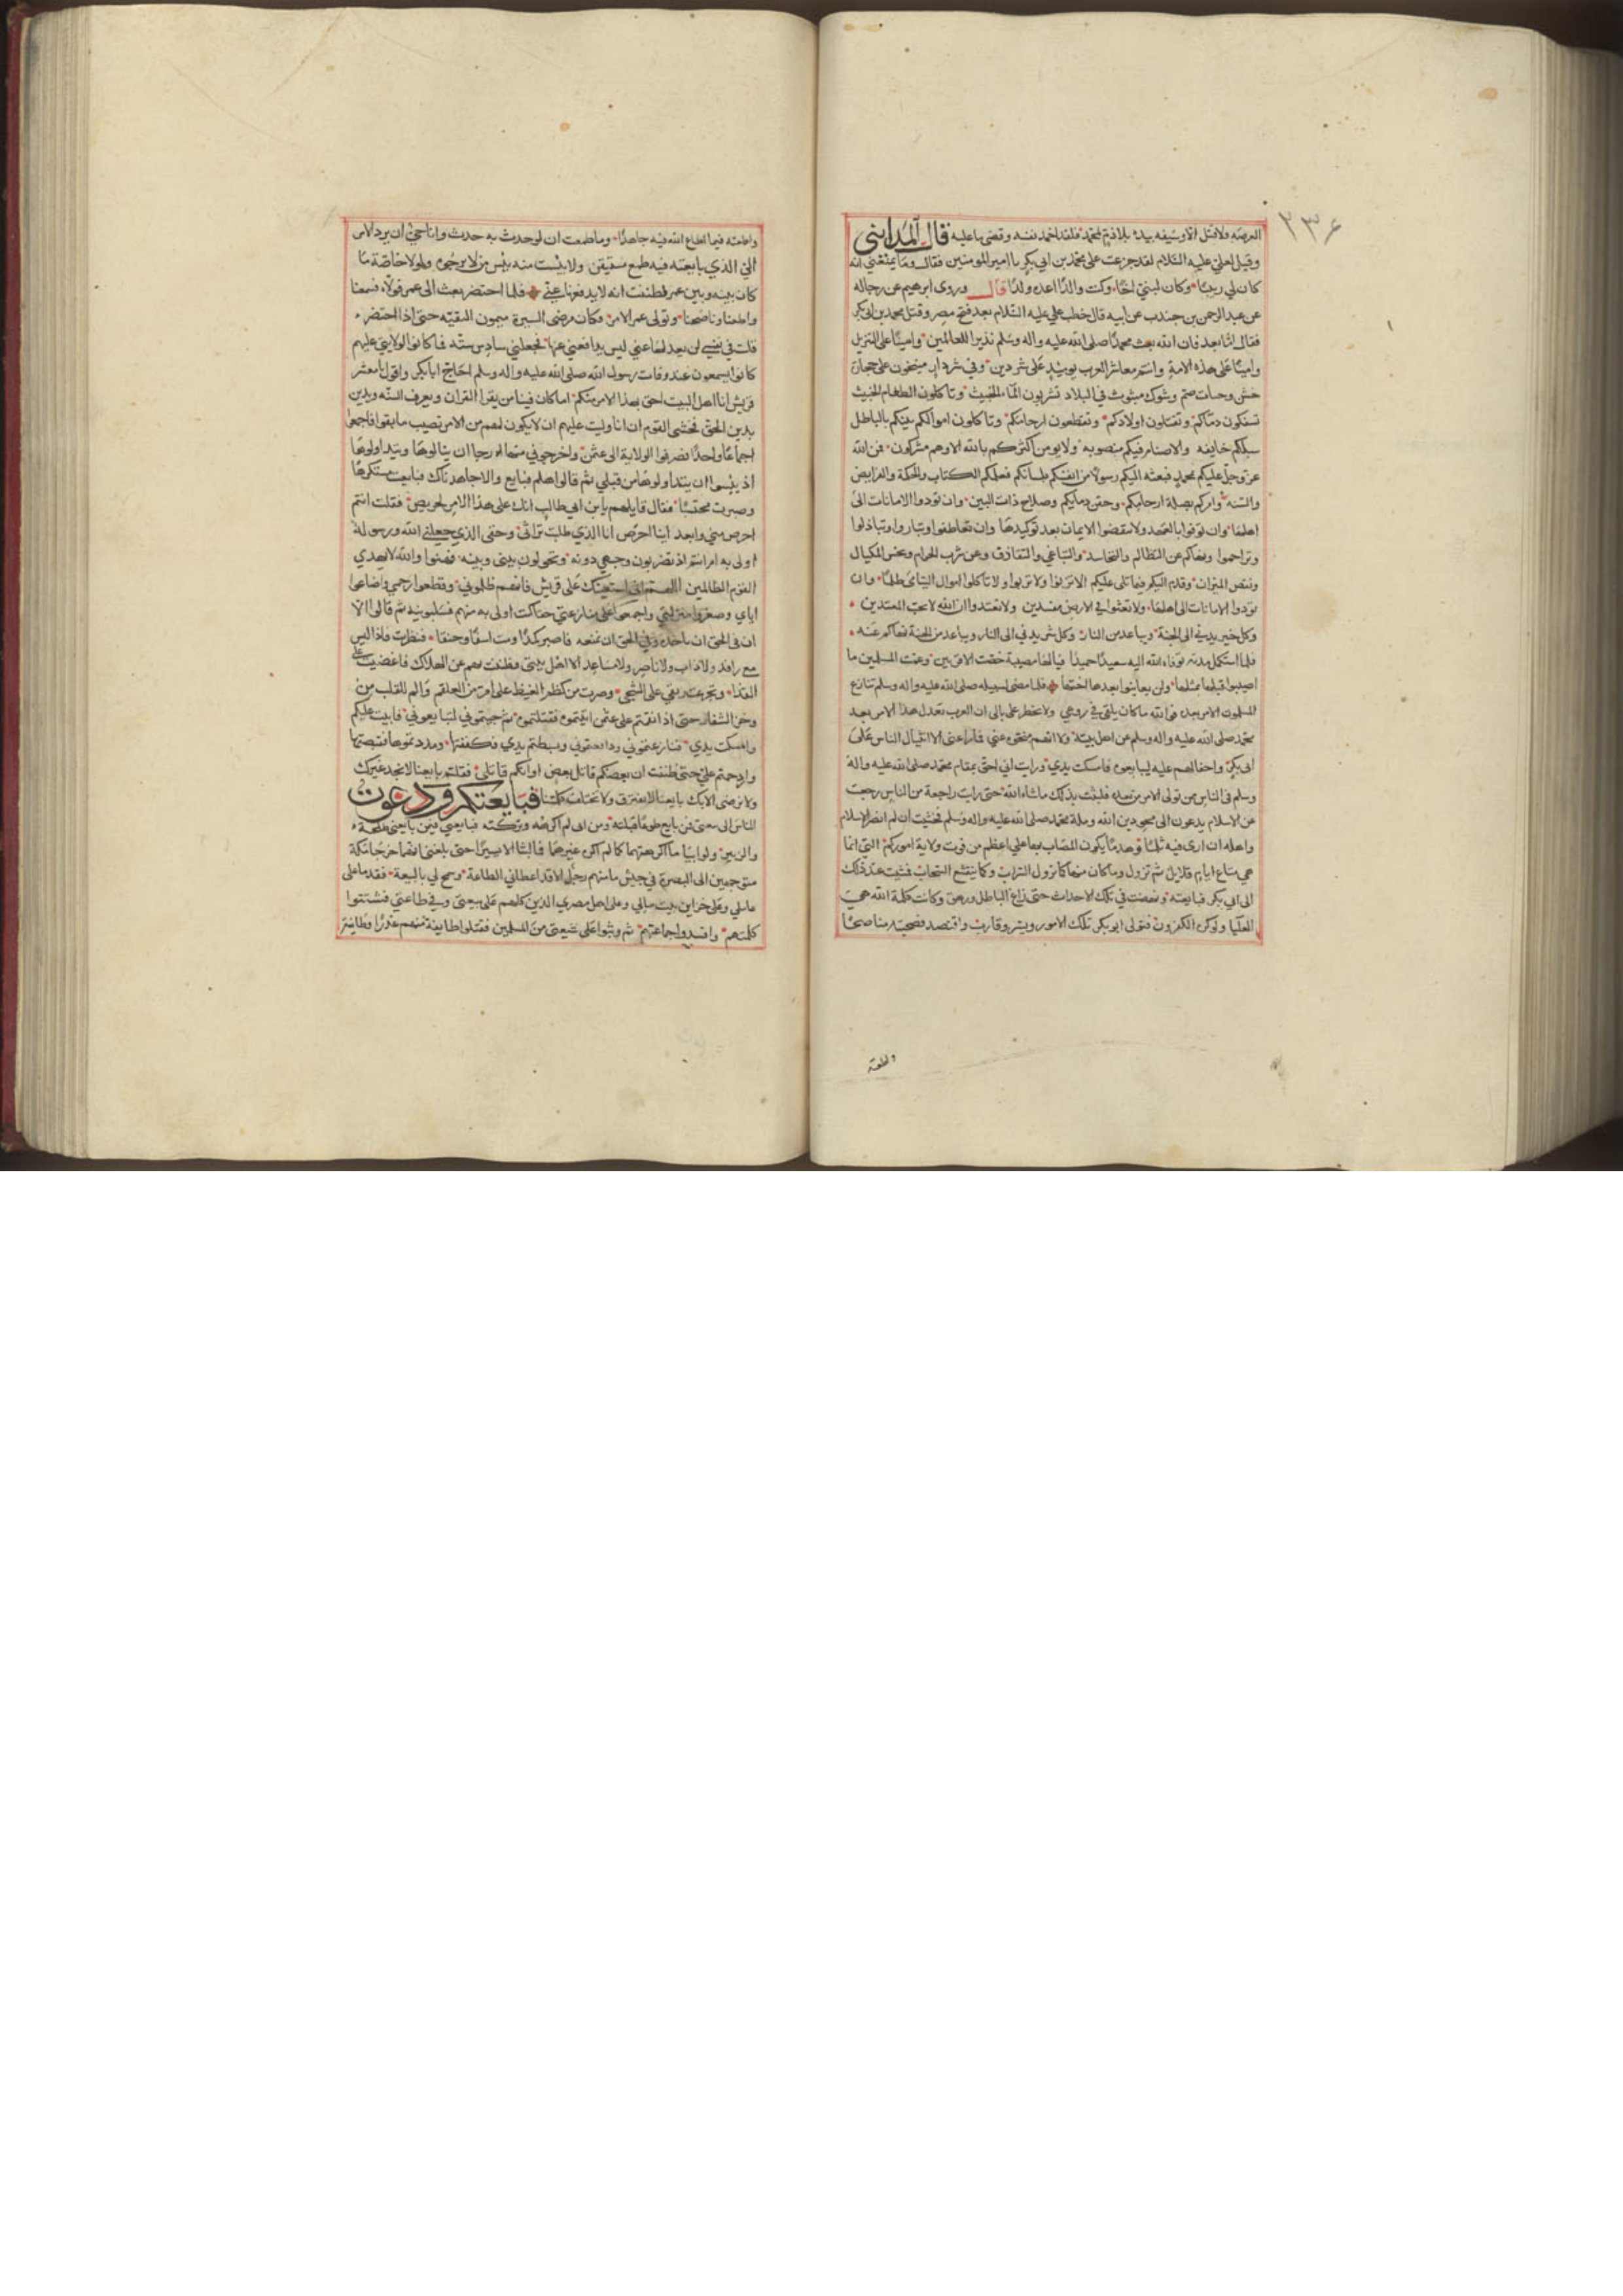 ٢٣٤
العرصه ولا قتل الا وسيفه بيده بلا ذم لمحمد فلقد اجهد نفسه وقضى ما عليه قال المدايني
وقيل لعلي عليه السلام لقد جزعت على محمد بن ابي بكر يا امير المومنين فقال وما يمنعني انه
كان لي ربيبا وكان لبني اخا وكنت والدا اعده ولدا قال وروى ابرهيم عن رجاله
عن عبد الرحمن بن جندب عن ابيه قال خطب علي عليه السلام بعد فتح مصر وقتل محمد بن ابي بكر
فقال اما بعد فان الله بعث محمدا صلى الله عليه واله وسلم نذيرا للعالمين وامينا على التنزيل
وامينا على هذه الامة وانتم معاشر العرب يوميذ على شر دين وفي شر دار منيخون على حجارة
خشن وحيات صم وشوك مبثوث في البلاد تشربون الماء الخبيث وتاكلون الطعام الخبيث
تسفكون دماكم وتقتلون اولادكم وتقطعون ارحامكم وتاكلون اموالكم بينكم بالباطل
سبلكم خايفه والاصنام فيكم منصوبه ولا يومن اكثركم بالله الا وهم مشركون فمن الله
عز وجل عليكم بمحمد فبعثه اليكم رسولا من انفسكم بلسانكم فعلمكم الكتاب والحكمة والفرايض
والسنه وامركم بصلة ارحامكم وحقن دمايكم وصلاح ذات البين وان تودوا الامانات الى
اهلها وان توفوا بالعهد ولا تنقضوا الايمان بعد توكيدها وان تعاطفوا وتباروا وتباذلوا
وتراحموا ونهاكم عن التظالم والتحاسد والتباغي والتقاذف وعن شرب الحرام وبخس المكيال
ونقص الميزان وتقدم اليكم فيما تلى عليكم الا تزنوا ولا تربوا ولا تاكلوا اموال اليتامى ظلما وان
تودوا الامانات الى اهلها ولا تعثوا في الارض مفسدين ولا تعتدوا ان الله لا يحب المعتدين
وكل خير يدني الى الجنة ويباعد من النار وكل شر يدني الى النار ويباعد من الجنة نهاكم عنه
فلما استكمل مدته توفاه الله اليه سعيدا حميدا فيا لها مصيبة خصت الاقربين وعمت المسلمين ما
اصيبوا قبلها بمثلها ولن يعاينوا بعدها اختها فلما مضى لسبيله صلى الله عليه واله وسلم تنازع
المسلمون الامر بعده فوالله ما كان يلقى في روعي ولا يخطر على بالى ان العرب تعدل هذا الامر بعد
محمد صلى الله عليه واله وسلم عن اهل بيته ولا انهم منحوه عني فما راعني الا انثيال الناس على
ابى بكر واجفالهم عليه ليبايعوه فامسكت يدي ورايت اني احق بمقام محمد صلى الله عليه واله
وسلم في الناس ممن تولى الامر من بعده فلبثت بذلك ما شاء الله حتى رايت راجعة من الناس رجعت
عن الاسلام يدعون الى محو دين الله وملة محمد صلى الله عليه واله وسلم فخشيت ان لم انصر الاسلام
واهله ان ارى فيه ثلما وهدما يكون المصاب بهما علي اعظم من فوت ولاية اموركم التي انما
هي متاع ايام قلايل ثم تزول وما كان منها كما تزول السراب وكما ينقشع السحاب فمشيت عند ذلك
الى ابي بكر فبايعته ونهضت في تلك الاحداث حتى زاغ الباطل وزهق وكانت كلمة الله هي
العليا ولو كره الكفرون فتولى ابو بكر تلك الامور ويسر وقارب واقتصد فصحبته مناصحا
واطعته
واطعته فيما اطاع الله فيه جاهدا وما طمعت ان لو حدث به حدث وانا حي ان يرد الامر
الي الذي بايعته فيه طمع مستيقن ولا يئست منه يئس من لا يرجوه ولولا خاصة ما
كان بينه وبين عمر لظننت انه لا يدفعها عني فلما احتضر بعث الى عمر فولاه فسمعنا
واطعنا وناصحنا وتولى عمر الامر فكان مرضي السيرة ميمون النقيبه حتى اذا احتضر
قلت في نفسي لن يعدلها عني ليس يدافعني عنها فجعلني سادس ستة فما كانوا لولايتي عليهم
كانوا يسمعون عند وفات رسول الله صلى الله عليه واله وسلم احاج ابا بكر واقول يا معشر
قريش انا اهل البيت احق بهذا الامر منكم اما كان فينا من يقرا القران ويعرف السنه ويدين
بدين الحق فخشى القوم ان انا وليت عليهم ان لا يكون لهم من الامر نصيب ما بقوا فاجمعوا
اجماعا واحدا فصرفوا الولاية الى عثمن واخرجوني منها رجا ان ينالوها ويتداولوها
اذ يئسوا ان يتداولوها من قبلي ثم قالوا هلم فبايع والا جاهدناك فبايعت مستكرها
وصبرت محتسبا فقال قايلهم يا بن ابي طالب انك على هذا الامر لحريص فقلت انتم
احرص مني وابعد اينا احرص انا الذي طلبت تراثي وحقي الذي جعلني الله ورسوله
اولى به ام انتم اذ تضربون وجهي دونه وتحولون بيني وبينه فبهتوا والله لا يهدي
القوم الظالمين اللهم اني استعينك على قريش فانهم ظلموني وقطعوا رحمي واضاعوا
اياي وصغروا منزلتي واجمعوا على منازعتي حقا كنت اولى به منهم فسلبونيه ثم قالوا الا
ان في الحق ان تاخذه وفي الحق ان تمنعه فاصبر كمدا او مت اسفا وحنقا فنظرت فاذا ليس
معي رافد ولا ذاب ولا ناصر ولا مساعد الا اهل بيتي فظننت بهم عن الهلاك فاغضيت على
القذا وتجرعت ريقي على الشجى وصبرت من كظم الغيظ على امر من العلقم والم للقلب من
وخز الشفار حتى اذا نقمتم على عثمن اتيتموه فقتلتموه ثم جيتموني لتبايعوني فابيت عليكم
وامسكت يدي فنازعتموني ودافعتموني وبسطتم يدي فكففتها ومددتموها فقبضتها
وازدحمتم علي حتى ظننت ان بعضكم قاتل بعض او انكم قاتلي فقلتم بايعنا لا نجد غيرك
ولا نرضى الا بك بايعنا لا نفترق ولا تختلف كلمتنا فبايعتكم ودعوت
الناس الى بيعتي فمن بايع طوعا قبلته ومن ابى لم اكرهه وتركته فبايعني فيمن بايعني طلحة
والزبير ولو ابيا ما اكرهتهما كما لم اكره غيرهما فما لبثا الا يسيرا حتى بلغني انهما خرجا من مكة
متوجهين الى البصرة في جيش ما منهم رجل الا قد اعطاني الطاعة وسمح لي بالبيعة فقدما على
عاملي وعلى خزاين بيت مالي وعلى اهل مصري الذين كلهم على بيعتي وفي طاعتي فشتتوا
كلمتهم وافسدوا جماعتهم ثم وثبوا على شيعتي من المسلمين فقتلوا طايفة منهم غدرا وطايفة